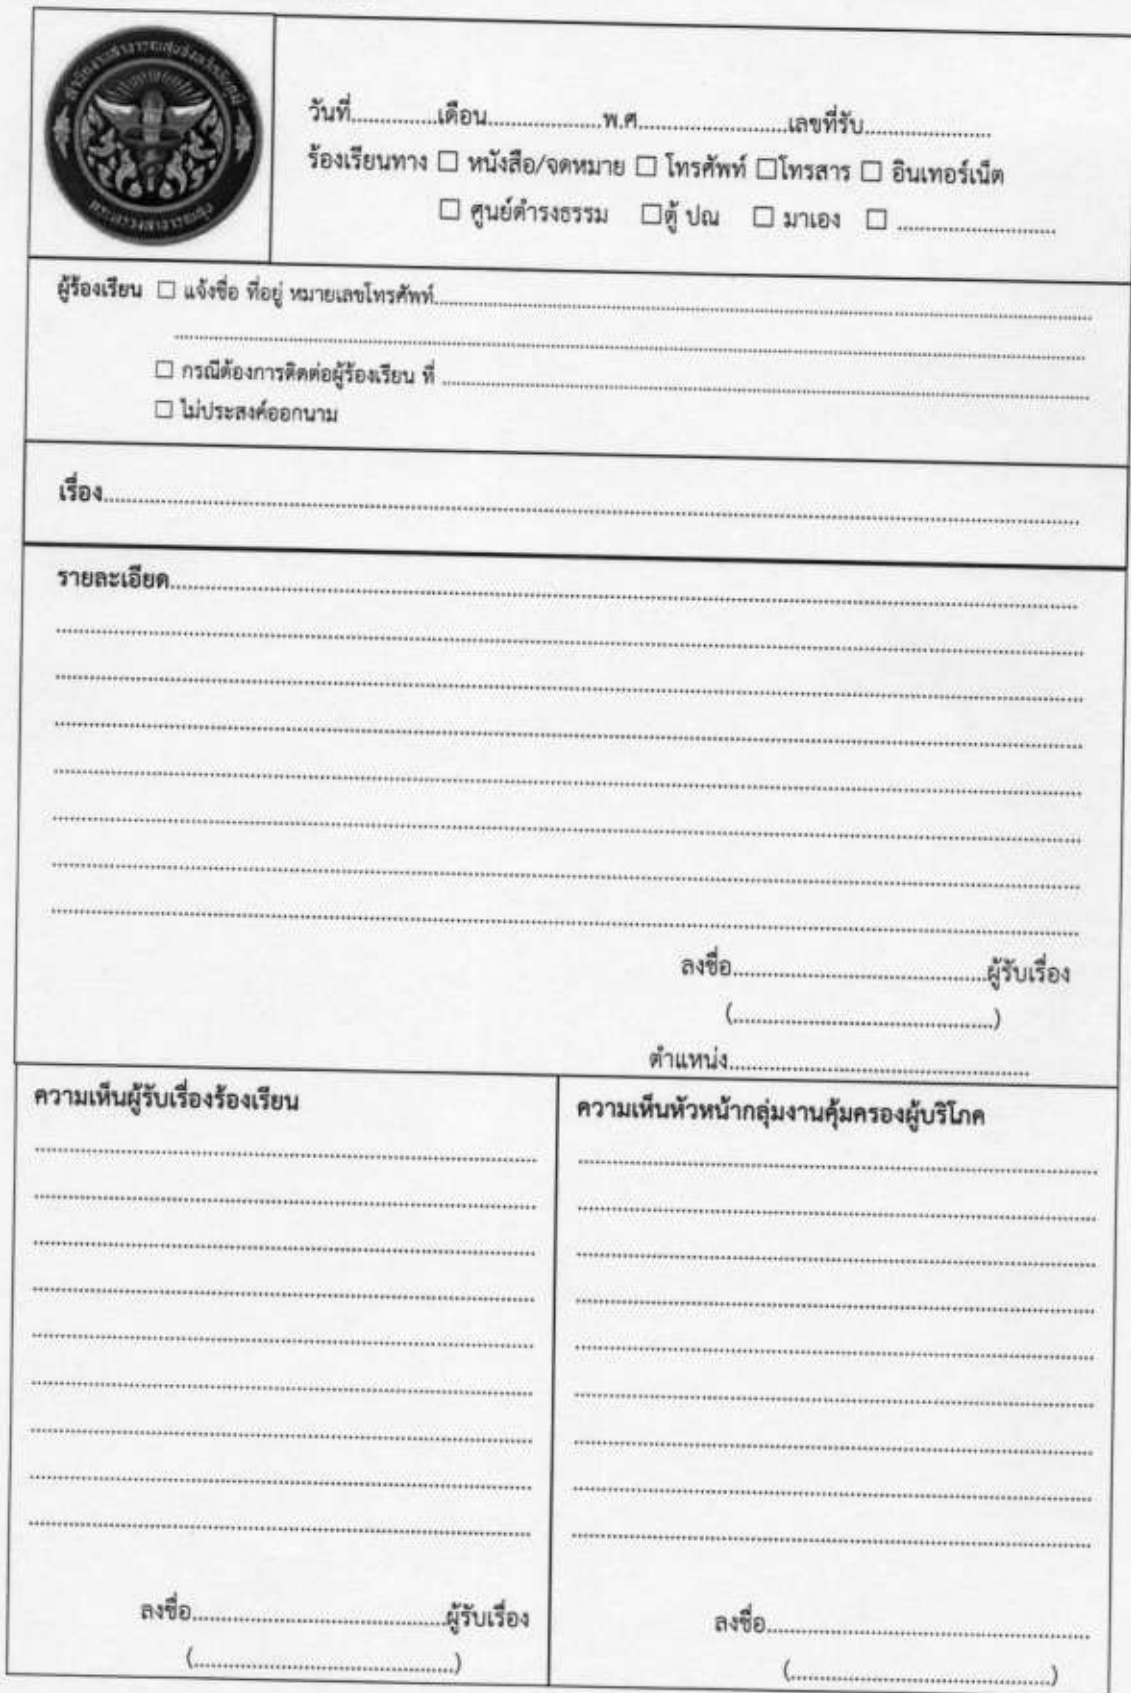 วันที่...............เดือน....................พ.ศ..........................เลขที่รับ......................
ร้องเรียนทาง ☐ หนังสือ/จดหมาย ☐ โทรศัพท์ ☐โทรสาร ☐ อินเทอร์เน็ต
☐ ศูนย์ดำรงธรรม ☐ตู้ ปณ ☐ มาเอง ☐ ............................
ผู้ร้องเรียน ☐ แจ้งชื่อ ที่อยู่ หมายเลขโทรศัพท์............................................................
☐ กรณีต้องการติดต่อผู้ร้องเรียน ที่ ............................................................
☐ ไม่ประสงค์ออกนาม
เรื่อง............................................................
รายละเอียด............................................................
ลงชื่อ............................................ผู้รับเรื่อง
(.............................................)
ตำแหน่ง....................................................
ความเห็นผู้รับเรื่องร้องเรียน
ความเห็นหัวหน้ากลุ่มงานคุ้มครองผู้บริโภค
ลงชื่อ............................................ผู้รับเรื่อง
(.............................................)
ลงชื่อ........................................................
(.............................................)